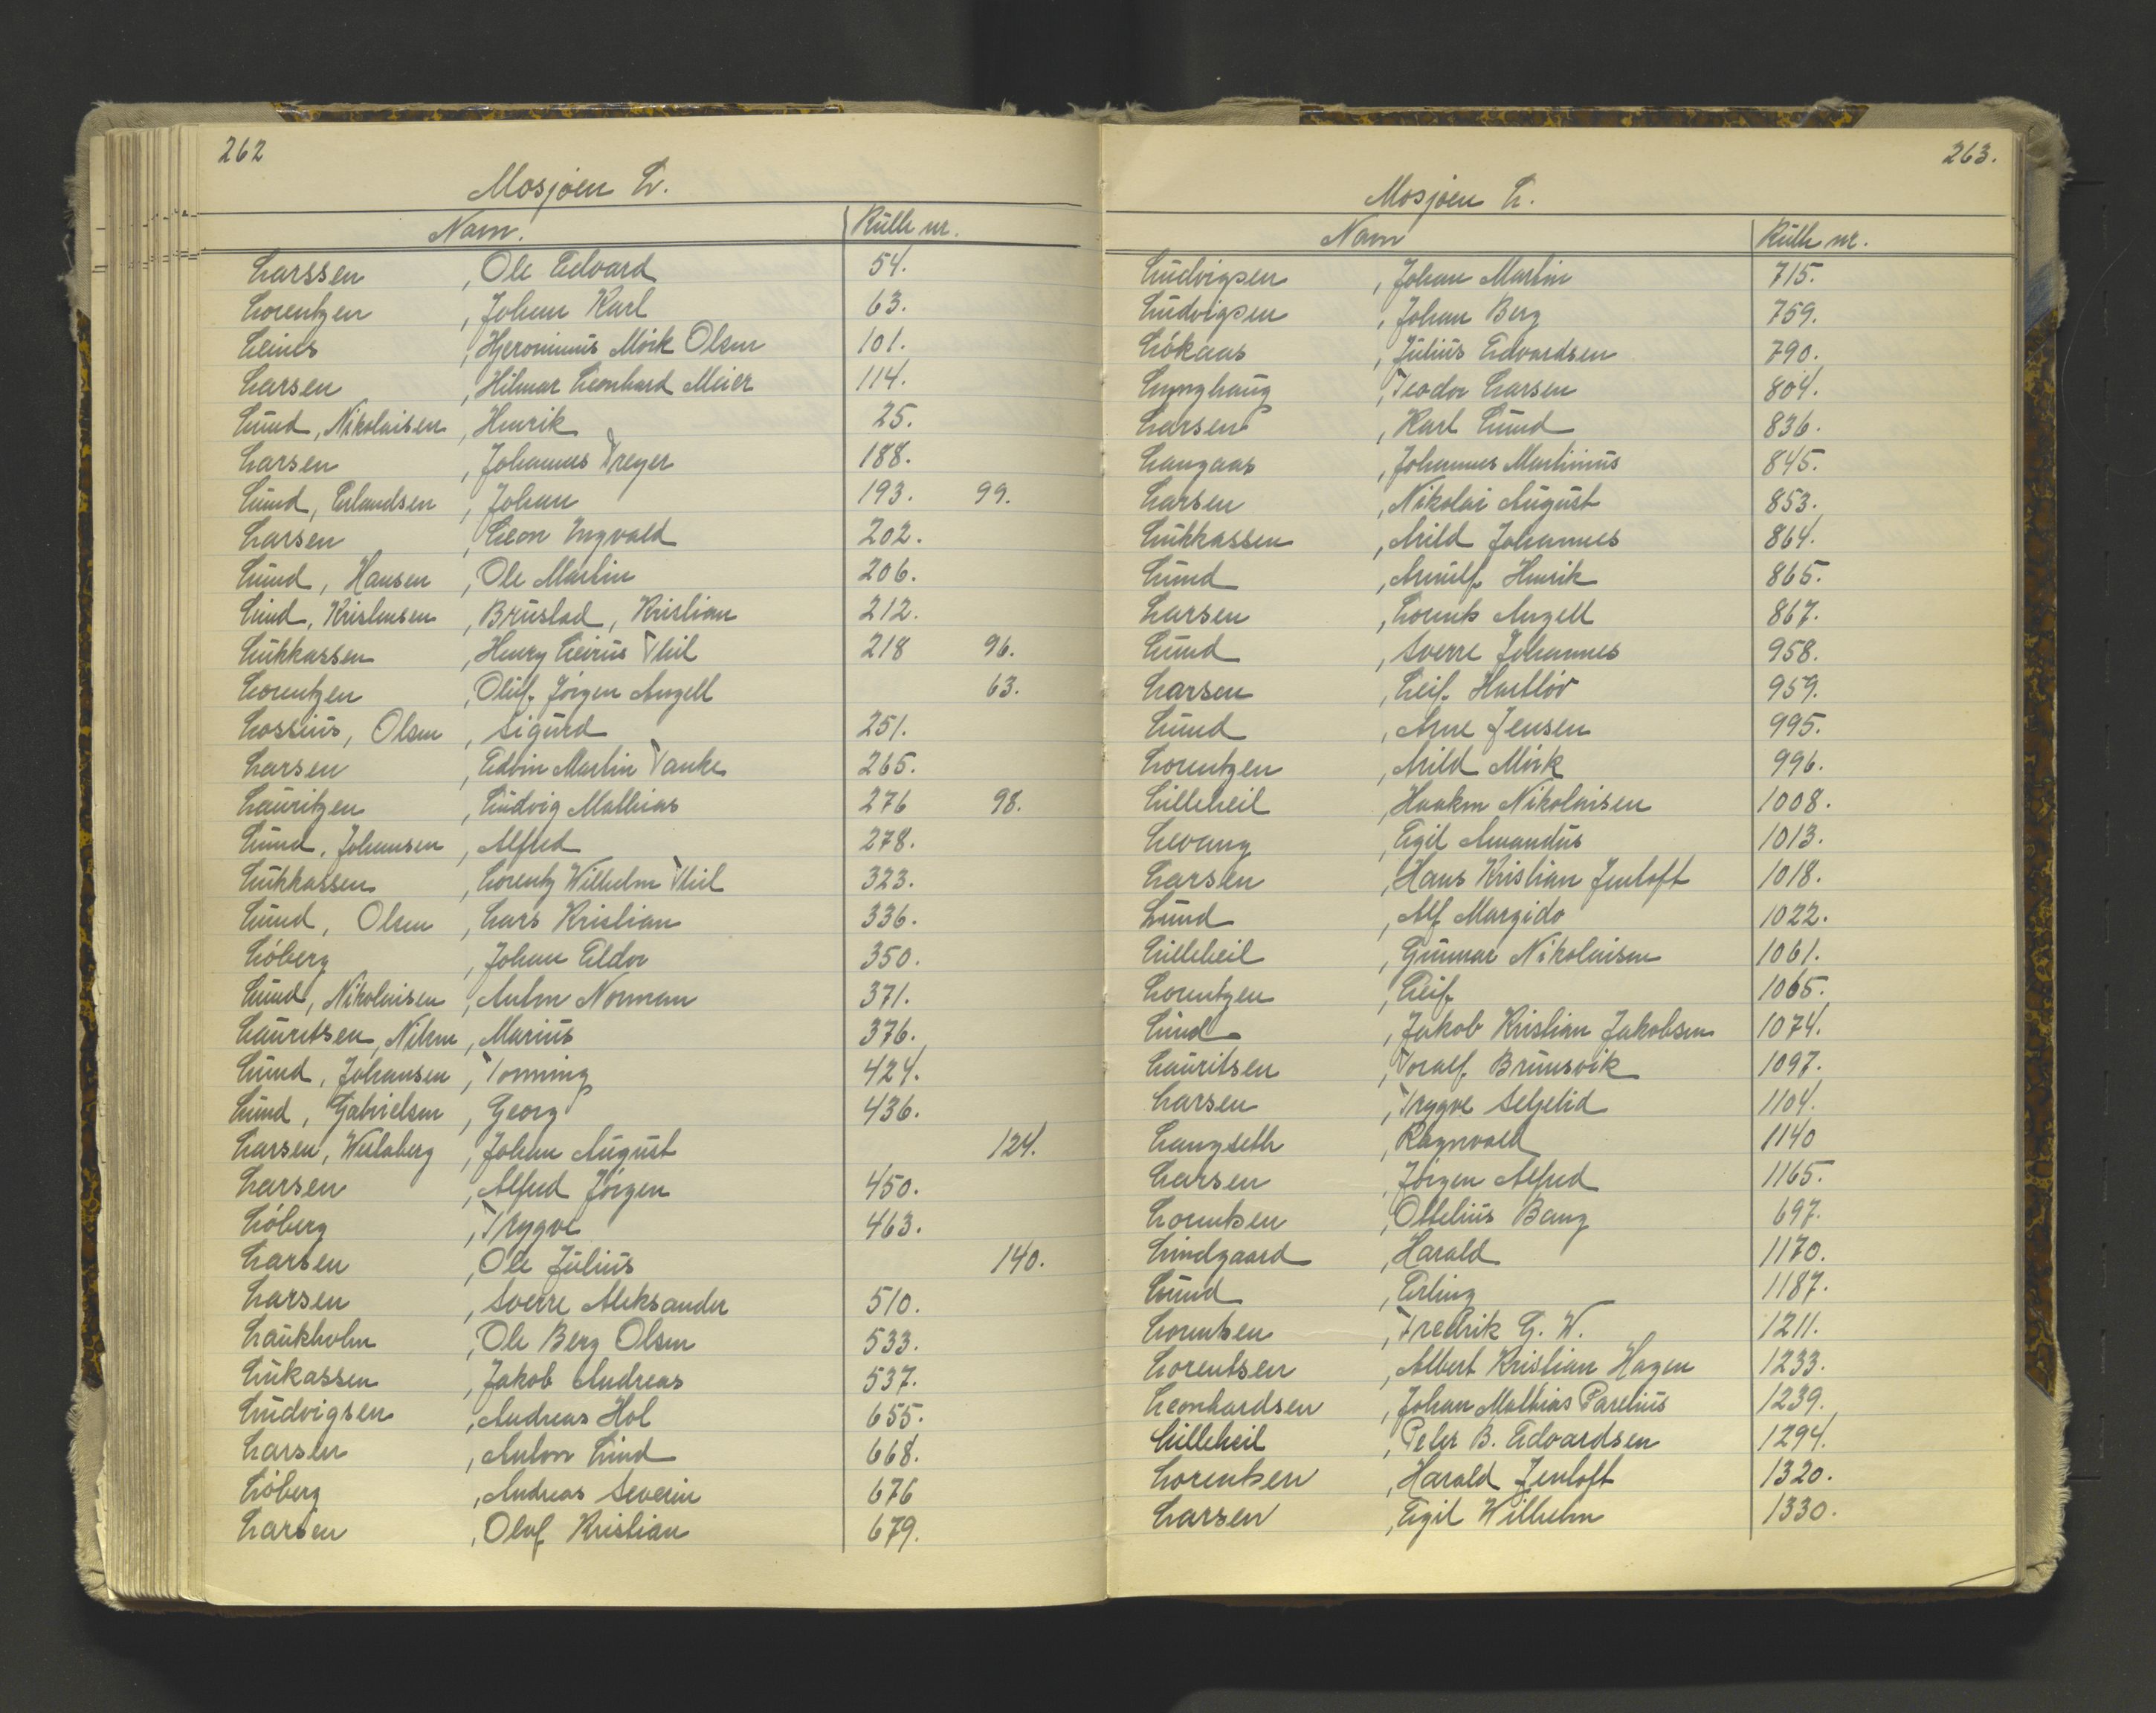 262
Mosjøen L.
Navn. Rulle nr.
Larssen , Ole Edvard 54.
Lorentzen , Johan Karl 63.
Leines , Hjeronimus Mørk Olsen 101.
Larsen , Hilmar Leonhard Meier 114.
Lund, Nikolaisen , Henrik 25.
Larsen , Johannes Dreyer 188.
Lund, Erlandsen , Johan 193. 99.
Larsen , Leon Ingvald 202.
Lund, Hansen , Ole Martin 206.
Lind, Kristensen , Brustad, Kristian 212.
Lukkassen , Henry Leirus Thil 218 96.
Lorentzen , Oluf Jørgen Angell 63.
Lossius, Olsen , Sigurd 251.
Larsen , Edvin Martin Tanke 265.
Lauritzen , Ludvig Mathias 276 98.
Lund, Johansen , Alfred 278.
Lukkassen , Lorentz Wilhelm Thil 323.
Lund, Olsen , Lars Kristian 336.
Løberg , Johan Eldor 350.
Lund, Nikolaisen , Anton Norman 371.
Lauritsen, Nilsen , Marius 376.
Lund, Johansen , Tonning 424.
Lund, Gabrielsen , Georg 436.
Larsen, , Johan August 124.
Larsen , Alfred Jørgen 450.
Løberg , Trygve 463.
Larsen , Ole Julius 140.
Larsen , Sverre Aleksander 510.
Laukholm , Ole Berg Olsen 533.
Lukassen , Jakob Andreas 537.
Ludvigsen , Andreas Hol 655.
Larsen , Anton Lind 668.
Løberg , Andreas Severin 676
Larsen , Oluf Kristian 679.
263.
Mosjøen L.
Navn Rulle nr.
Ludvigsen , Johan Martin 715.
Ludvigsen , Johan Berg 759.
Løkaas , Julius Edvardsen 790.
Lynghaug , Teodor Larsen 804.
Larsen , Karl Lund 836.
Langaas , Johannes Martinius 845.
Larsen , Nikolai August 853.
Lukkassen , Arild Johannes 864.
Lund , Arnulf Henrik 865.
Larsen , Lorents Angell 867.
Lund , Sverre Johannes 958.
Larsen , Leif Hartløv 959.
Lund , Arne Jensen 995.
Lorentzen , Arild Mørk 996.
Lilleheil , Haakon Nikolaisen 1008.
Levang , Egil Amandus 1013.
Larsen , Hans Kristian Jentoft 1018.
Lund , Alf Margido 1022.
Lilleheil , Gunnar Nikolaisen 1061.
Lorentzen , Leif 1065.
Lund , Jakob Kristian Jakobsen 1074.
Lauritsen , Toralf Brunsvik 1097.
Larsen , Trygve Seljelid 1104.
Langseth , Ragnvald 1140
Larsen , Jørgen Alfred 1165.
Lorentsen , Ottelius Bang 697.
Lindgaard , Harald 1170.
Lund , Erling 1187.
Lorentsen , Fredrik G. W. 1211.
Lorentsen , Albert Kristian Hagen 1233.
Leonhardsen , Johan Mathias Parelius 1239.
Lilleheil , Peter B. Edvardsen 1294.
Lorentsen , Harald Jentoft 1320.
Larsen , Egil Wilhelm 1330.